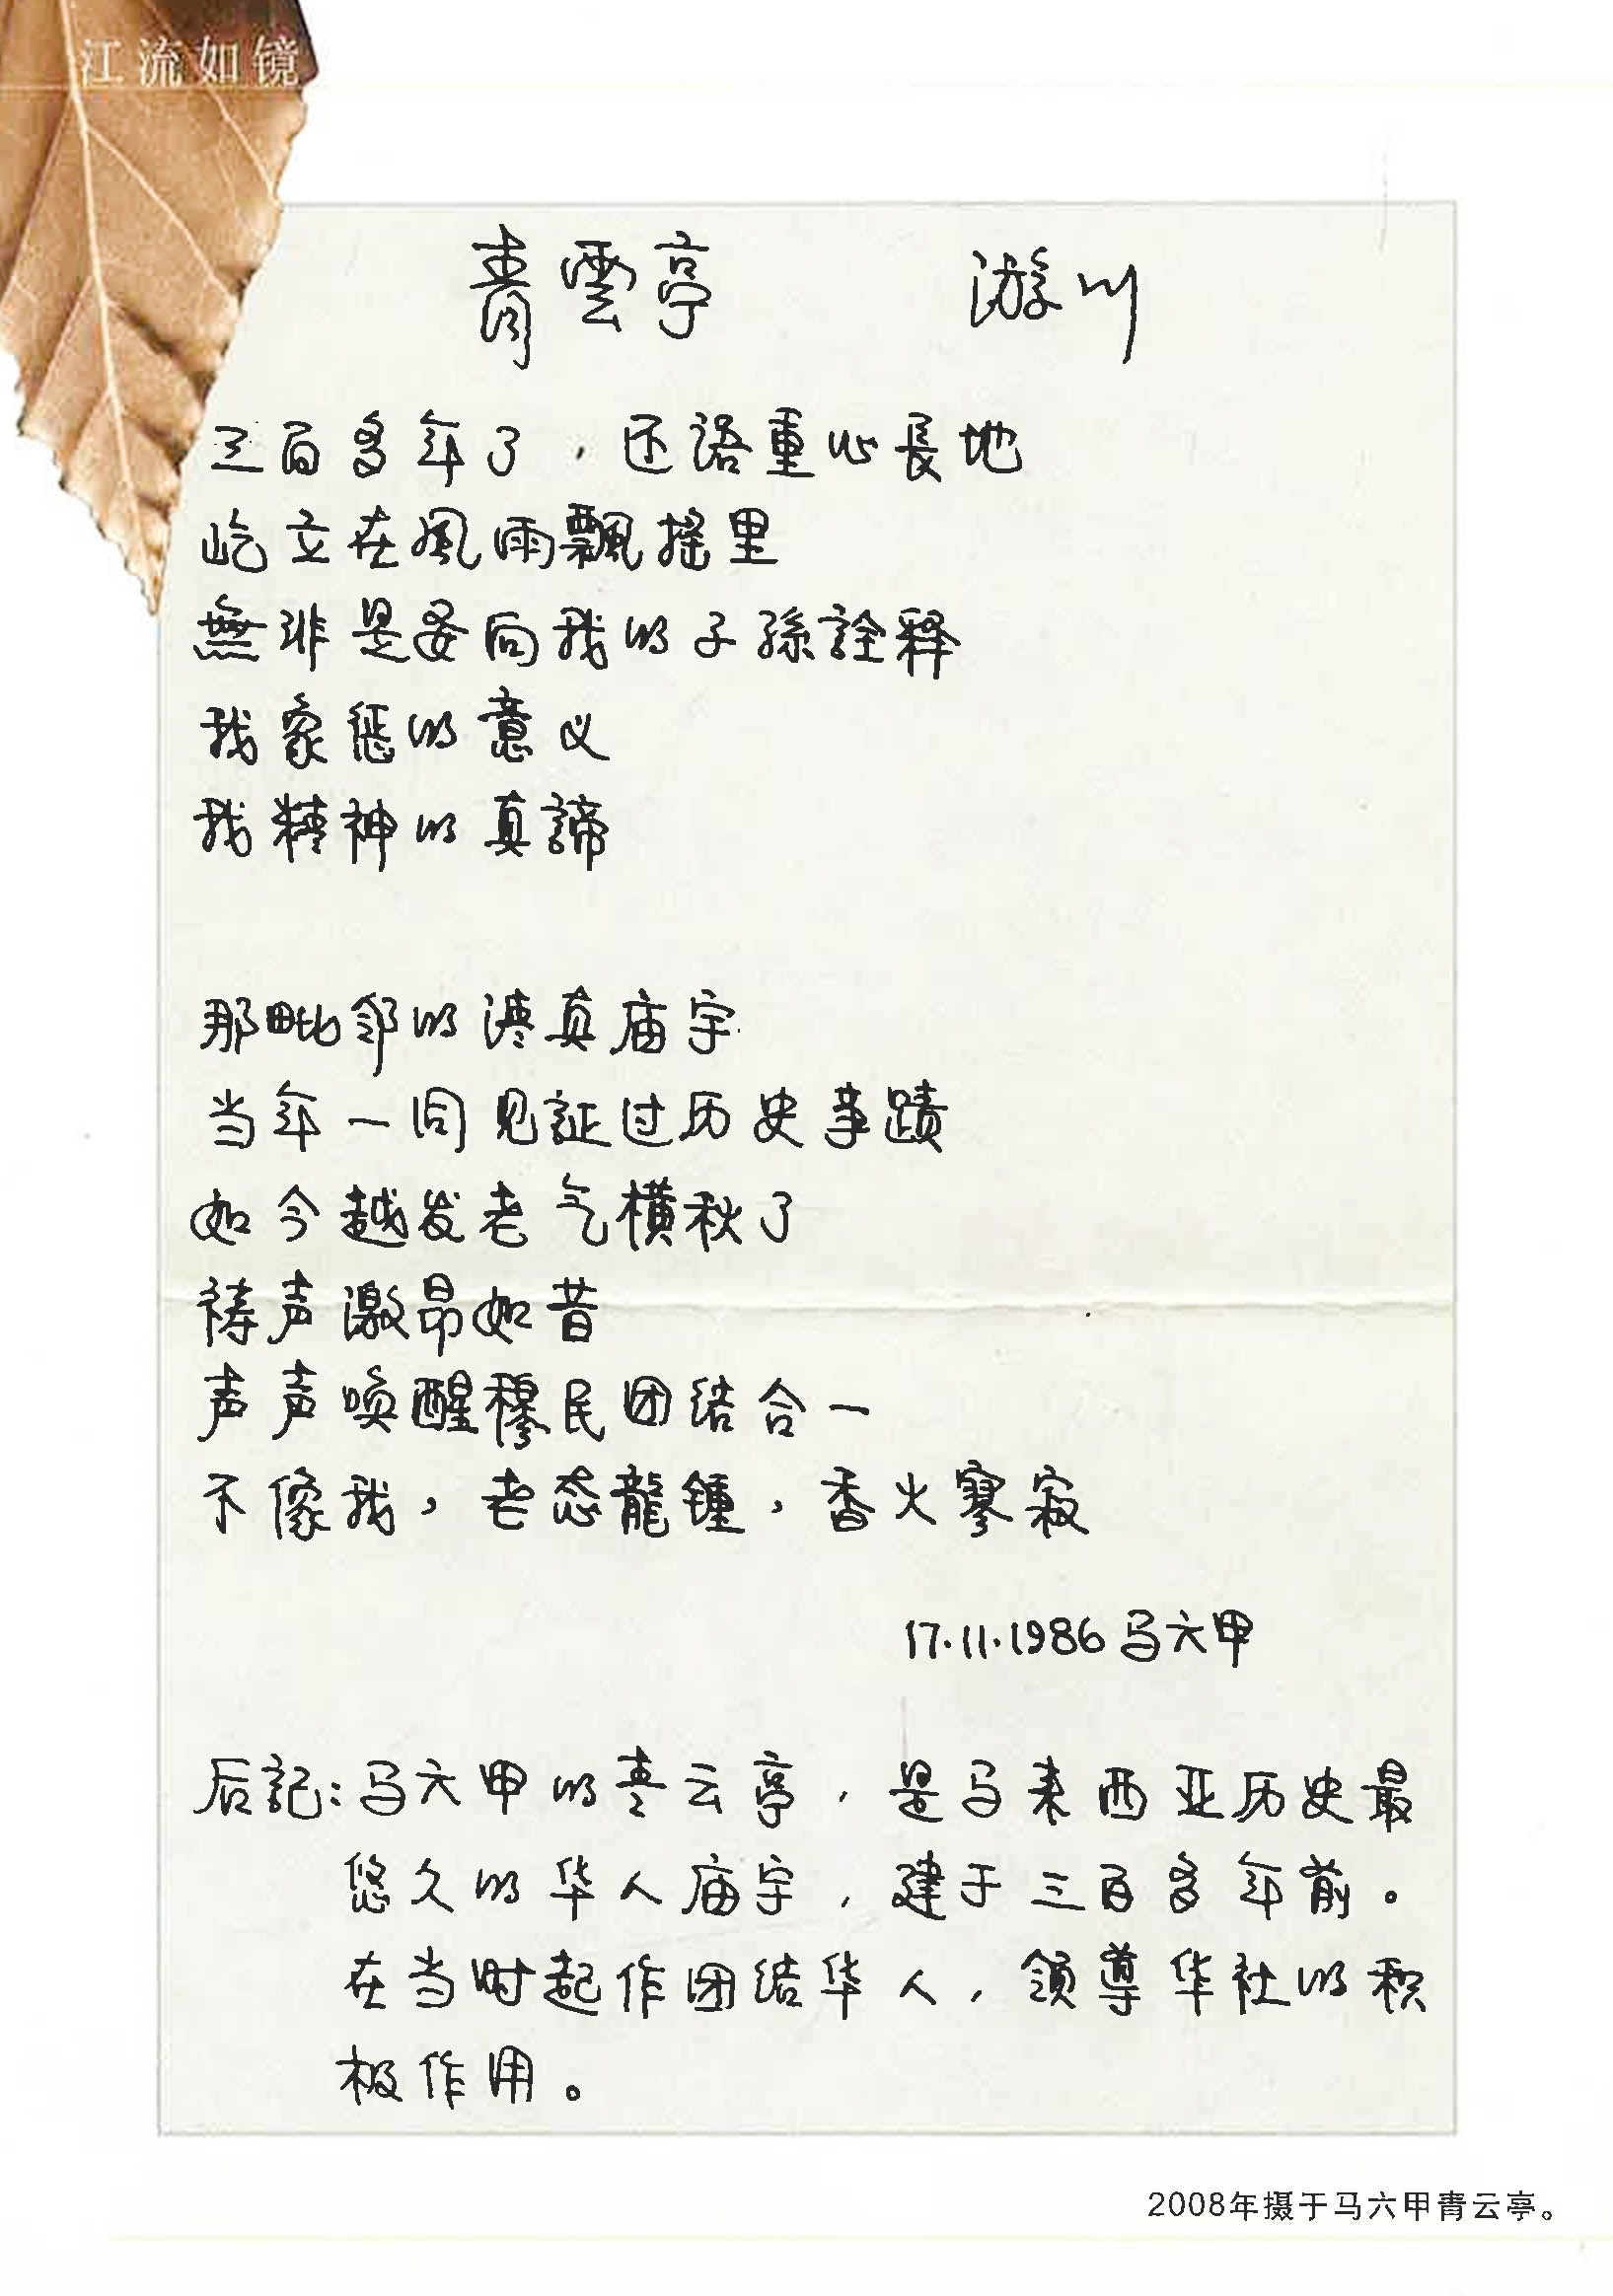 江流如镜
青雲亭 游川
三百多年了，还语重心長地
屹立在風雨飄摇里
無非是要向我的子孫詮释
我象徵的意义
我精神的真諦
那毗邻的清真庙宇
当年一同见証过历史事蹟
如今越发老气横秋了
祷声激昂如昔
声声唤醒穆民团结合一
不像我，老态龍鍾，香火寥寂
17.11.1986 马六甲
后記：马六甲的青云亭，是马来西亚历史最
悠久的华人庙宇，建于三百多年前。
在当时起作团结华人，领導华社的积
极作用。
2008年摄于马六甲青云亭。